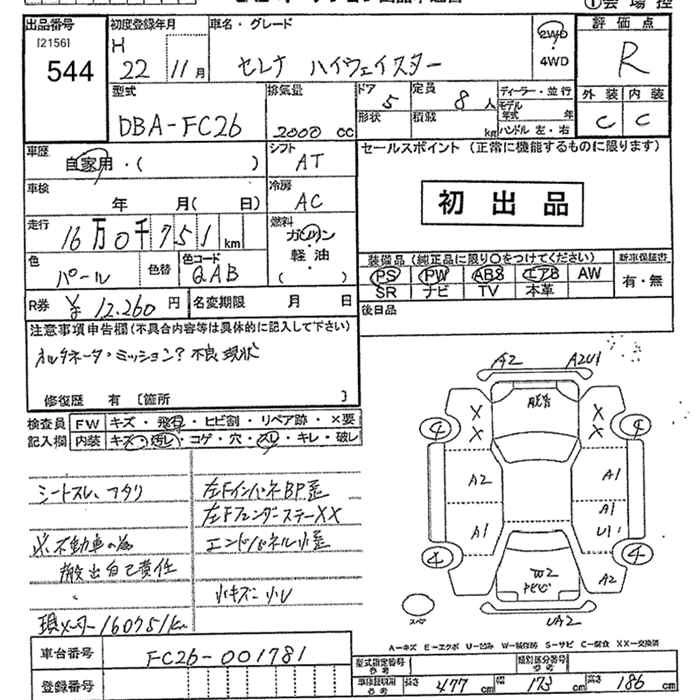 出品番号 初度登録年月 車名・グレード 2WD 評価点
[2156] H
544 22年 11月 セレナ ハイウェイスター 4WD R
型式 排気量 ドア 5 定員 8人 ディーラー・並行 外装 内装
DBA-FC26 2000 cc 形状 積載 kg モデル年式 年 C C
ハンドル 左・右
車歴 自家用・( ) シフト AT セールスポイント (正常に機能するものに限ります)
車検 年 月( 日) 冷房 AC 初出品
走行 16万0千751km 燃料 ガソリン
軽油・( )
装備品(純正品に限り○をつけてください) 新車保証書
色 パール 色替 色コード QAB PS PW ABS エアB AW 有・無
SR ナビ TV 本革
R券 ¥12,260円 名変期限 月 日 後日品
注意事項申告欄(不具合内容等は具体的に記入して下さい)
オルタネータ・ミッション? 不良 現状
修復歴 有 [箇所 ]
A2 A2U1
検査員 FW キズ・飛石・ヒビ割・リペア跡・×要
記入欄 内装 キズ・汚レ・コゲ・穴・スレ・キレ・破レ
X X
4 X X 4
シートスレ、フタリ 左FインパネBP歪
左FフェンダーステーXX
A2 A1
※不動車の為 エンドパネル小歪
A1 A1
U1
搬出自己責任
4 4
小キズ 小U
W2 A2
現メーター160751km
スペア UA2
A=キズ E=エクボ U=凹み W=補修跡 S=サビ C=腐食 XX=交換済
車台番号 FC26-001781
型式指定番号 参考 類別区分番号 参考
登録番号 車検証明用 参考 長さ 477cm 幅 173cm 高さ 186cm